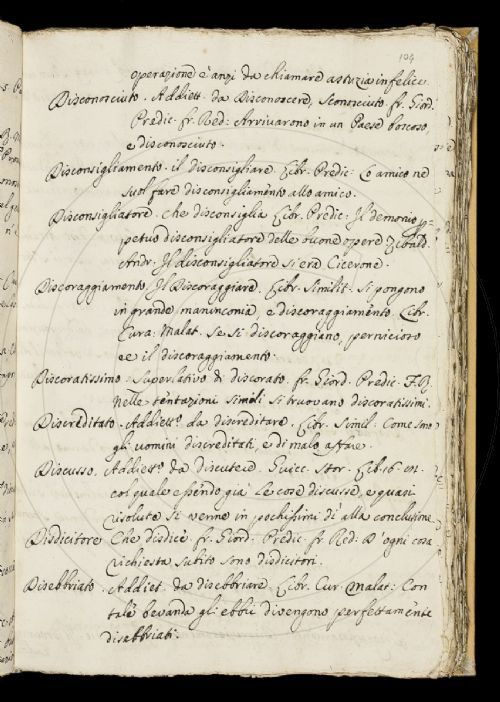 104
operazione è anzi da chiamare astuzia infelice.
Disconosciuto. Addiett. da Disconoscere, Sconosciuto. fr. Giord.
Predic. fr. Red: Arrivarono in un Paese boscoso,
e disconosciuto.
Disconsigliamento. il disconsigliare. Libr. Predic: Lo amico ne
suol fare disconsigliamento allo amico.
Disconsigliatore. Che disconsiglia Libr. Predic: Il demonio per
petuo disconsigliatore delle buone opere Zibald.
Andr: Il disconsigliatore si era Cicerone.
Discoraggiamento. Il Discoraggiare. Libr. Similit. Si pongono
in grande maninconia, e discoraggiamento. Libr.
Cura: Malat. Se si discoraggiano, pernicioso
ee il discoraggiamento.
Discoratissimo. Superlativo di discorato. fr. Giord. Predic.
Nelle tentazioni simili si truovano discoratissimi.
Discreditato. Addiett.º da discreditare. Libr. Simil. Come sono
gli uomini discreditati, e di malo affare.
Discusso. Addiett.º da discutere. Guicc. Stor. Lib. 16.
col quale essendo già le cose discusse, e quasi
risolute si venne in pochissimi dì alla conclusione.
Disdicitore Che disdice fr. Giord: Predic. fr. Red: D'ogni cosa
richiesta subito sono disdicitori.
Disebbriato. Addiet. da disebbriare. Libr. Cur. Malat: Con
tale bevanda gli ebbri divengono perfettamente
disebbriati.